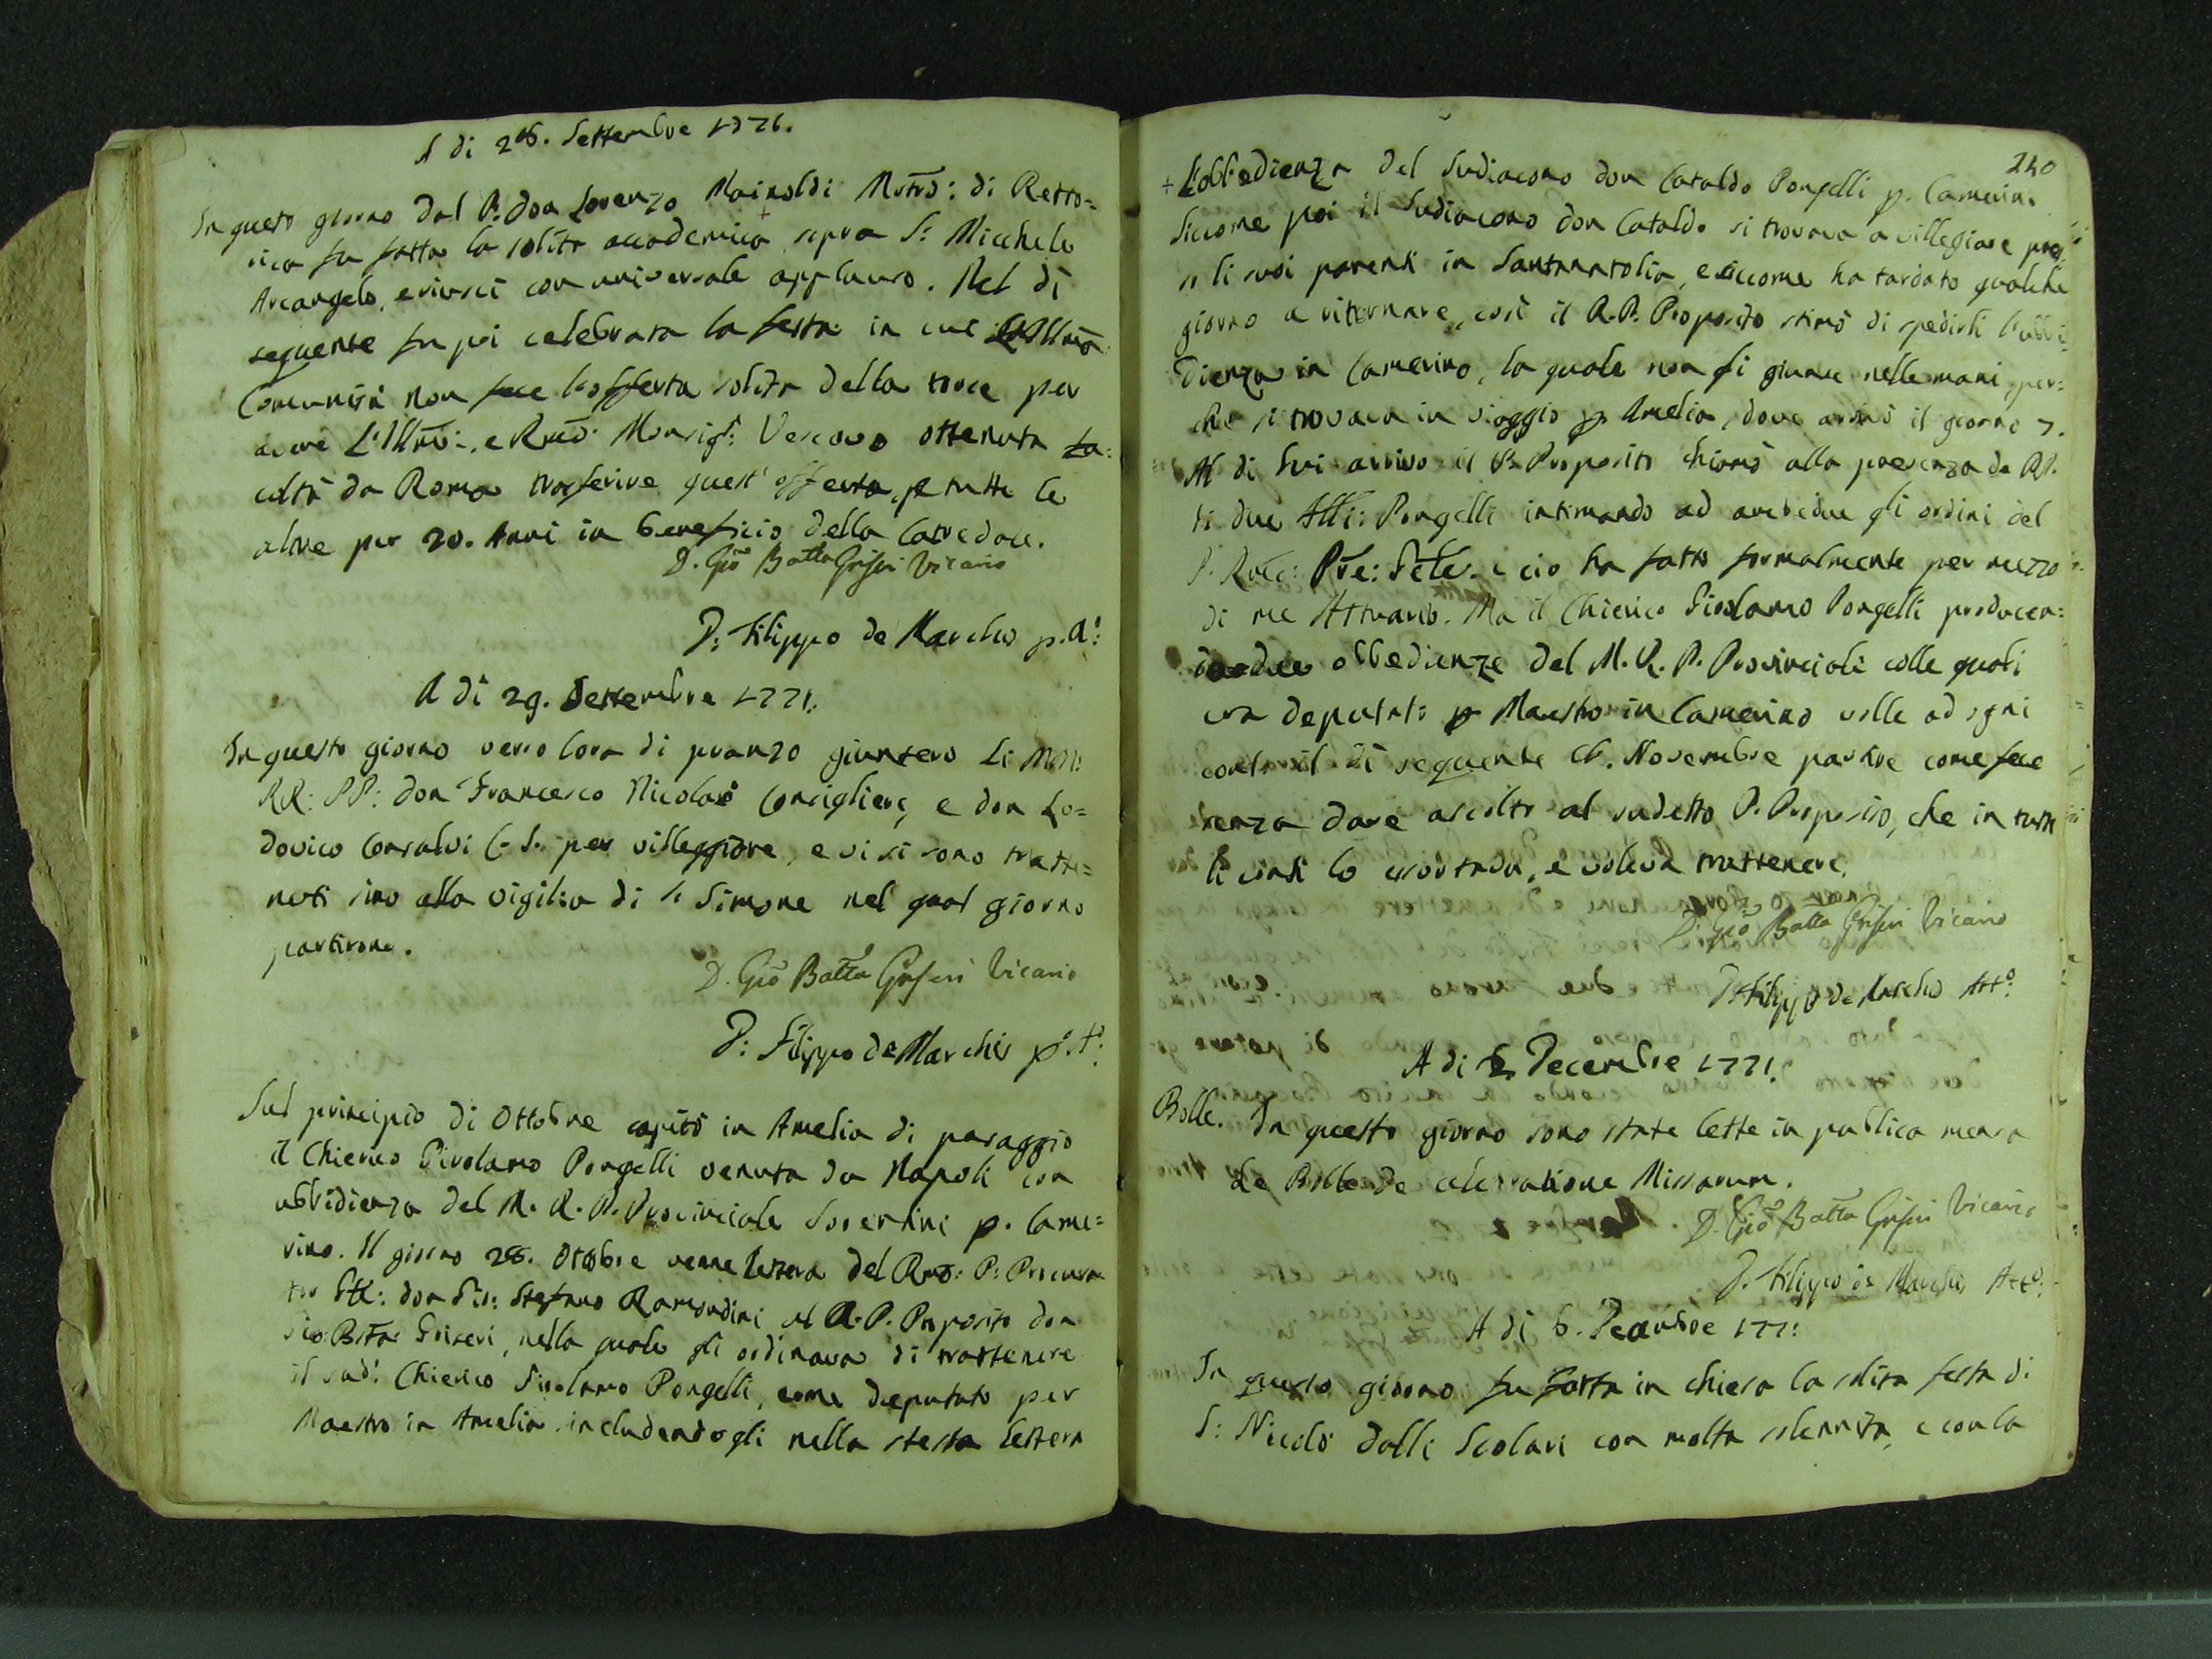 A di 28. Settembre 1771.
In questo giorno dal P. don Lorenzo Mainoldi Mrõ: di Retto=
rica fu fatta la solita accademica sopra S: Micchele
Arcangelo, e riuscì con universale applauso. Nel dì
seguente fu poi celebrata la festa in cui L'Illma
Comunità non fece l'offerta solita della torce per
avere L'Illmõ:, e Rmõ: Monsigr: Vescovo ottenuta fa:
coltà da Roma trasferire quest'offerta, e tutte le
altre per 20. Anni in beneficio della Catredale.
D. Gio Batta Griseri Vicario
D: Filippo de Marchis p. A:
A di 29. Settembre 1771.
In questo giorno verso l'ora di pranzo giunsero li MM:
RR: PP: don Francesco Nicolas Consigliere, e don Lo=
dovico Consalvi C. S. per villeggiare, e vi si sono tratte=
nuti sino alla vigilia di S. Simone nel qual giorno
partirono.
D. Gio Batta Griseri Vicario
D: Filippo de Marchis p.º A:
Sul principio di Ottobre capitò in Amelia di passaggio
il Chierico Girolamo Pongelli venuto da Napoli con
ubbidienza del M. R. P. Provinciale Soverini p. Came=
rino. Il giorno 28. Ottobre venne lettera del Rmõ: P: Procura
tor Gñ: don Gio: Stefano Ramondini al R. P. Proposito don
Gio Btta: Griseri, nella quale gli ordinava di trattenere
il sud! Chierico Girolamo Pongelli, come deputato per
Maestro in Amelia, includendogli nella stessa lettera
240
+ L'obbedienza del Sudiacono don Cataldo Pongelli p. Camerino
Siccome poi il Sudiacono don Cataldo si trovava a villegiare pres
so li suoi parenti in Santanatolia, e siccome ha tardato qualche
giorno a ritornare, così il R. P. Proposito stimò di spedirli l'ubbi=
dienza in Camerino, la quale non gli giunse nelle mani, per=
chè si trovava in viaggio p. Amelia, dove arrivò il giorno 7.
Al di lui arrivo il P. Proposito chiamò alla presenza de RP.
li due Flli: Pongelli intimando ad ambedue gli ordini del
P. Rmo: Pre: Gẽle. e ciò ha fatto formalmente per mezzo
di me Attuario. Ma il Chierico Girolamo Pongelli producen:
do due obbedienze del M. R. P. Provinciale colle quali
era deputato p Maestro in Camerino volle ad ogni
conto il dì seguente 8. Novembre partire come fece
senza dare ascolto al sudetto P. Proposito, che in tutti
li conti lo esortava, e voleva trattenere.
D. Gio Batta Griseri Vicario
D. Filippo de Marchis Att.º
A di 2. Decembre 1771.
Bolle. In questo giorno sono state lette in publica mensa
le Bolle de celebratione Missarum.
D. Gio Batta Griseri Vicario
D. Filippo de Marchis Att.º
A di 6. Decembre 1771:
In questo giorno fu fatta in chiesa la solita festa di
S: Nicolò dalli Scolari con molta solennità, e con la